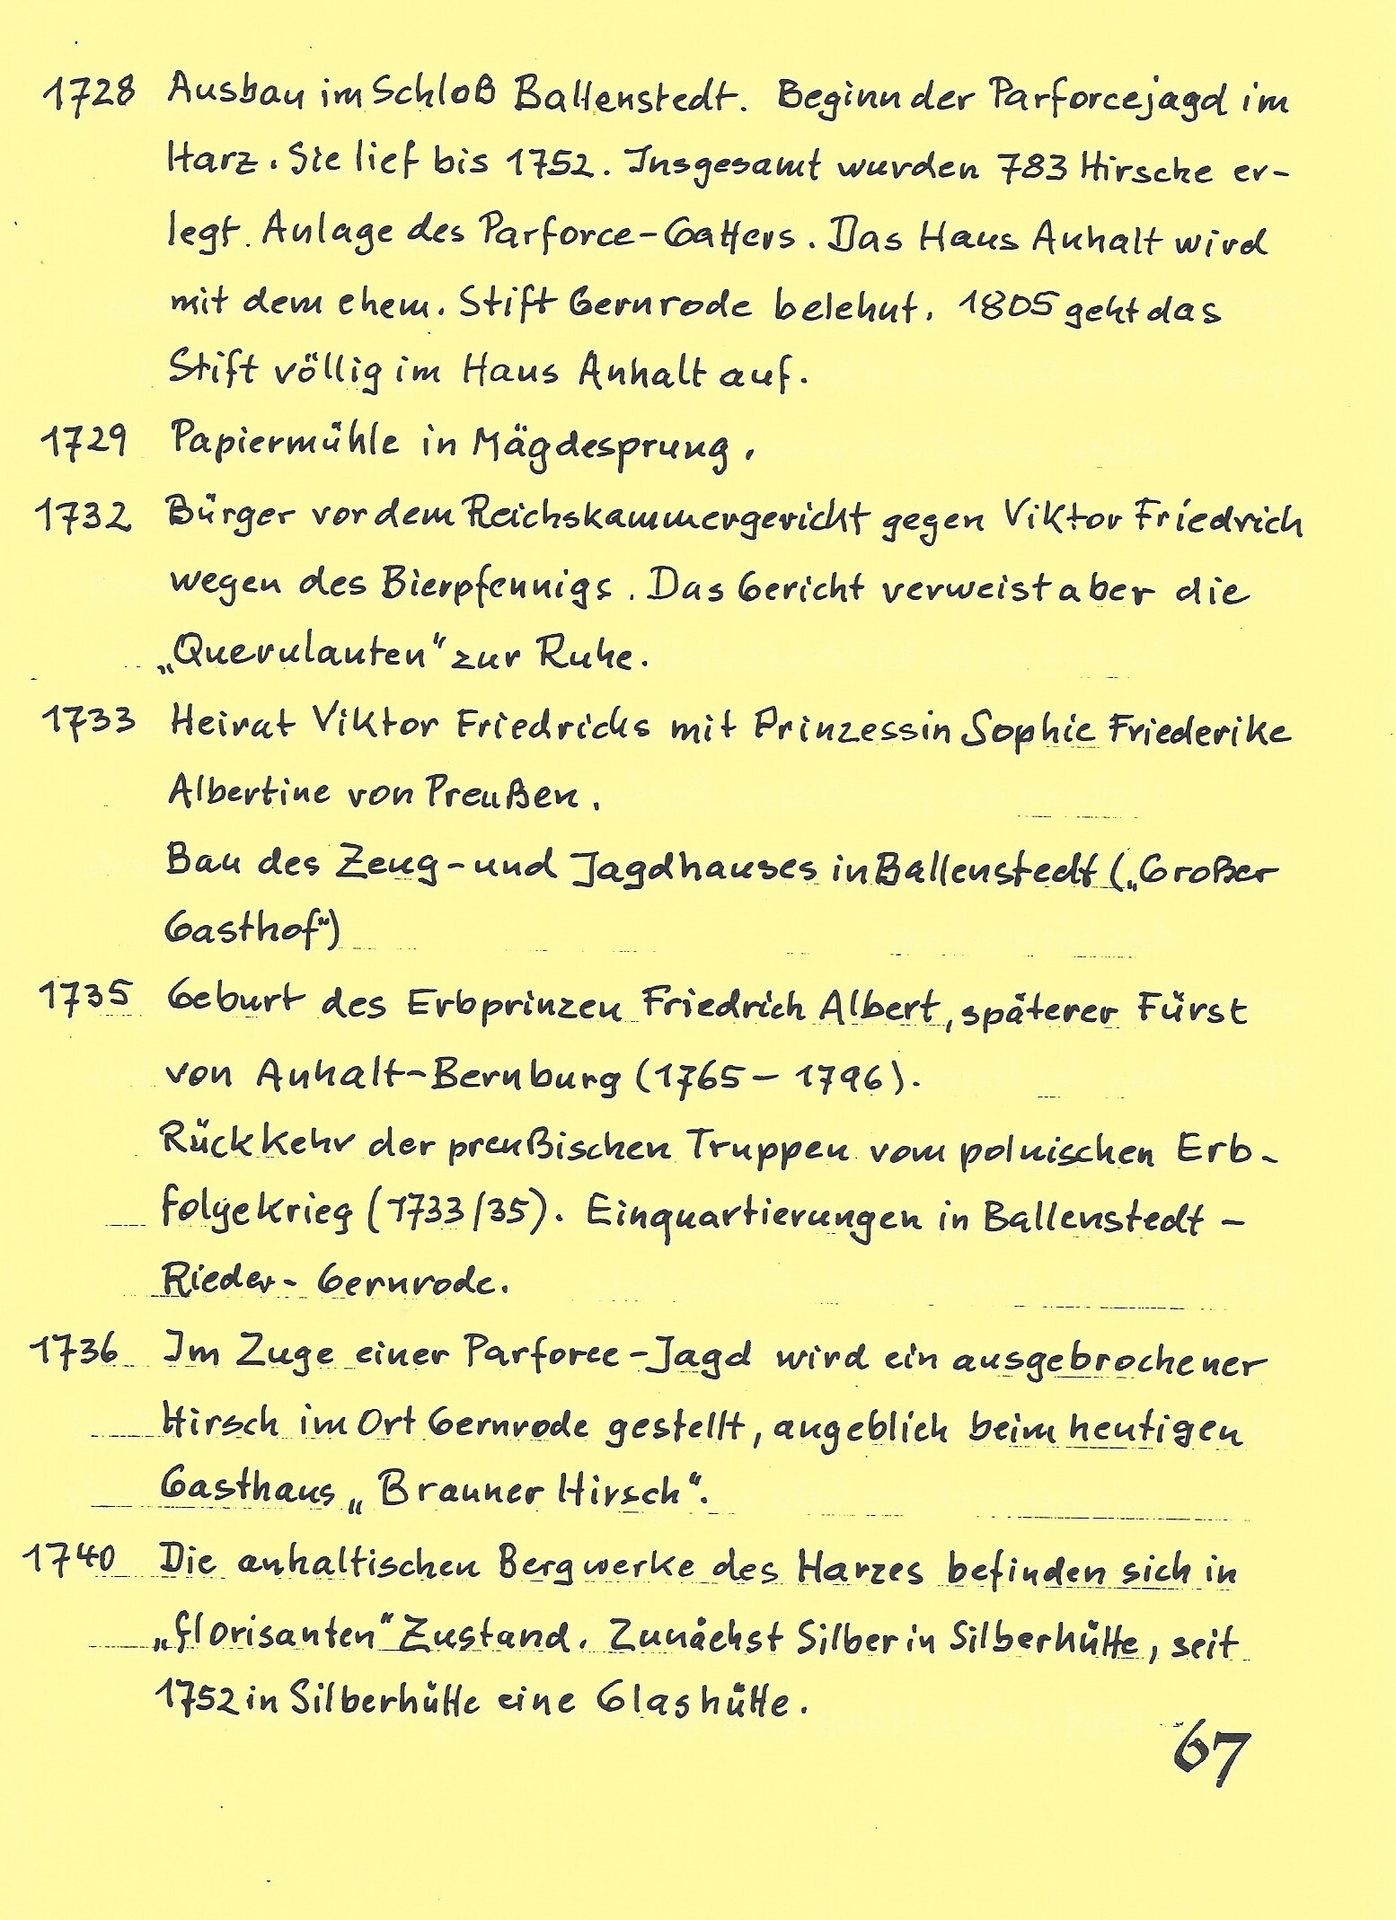 1728 Ausbau im Schloß Ballenstedt. Beginn der Parforcejagd im
Harz. Sie lief bis 1752. Insgesamt wurden 783 Hirsche er-
legt. Anlage des Parforce-Gatters. Das Haus Anhalt wird
mit dem ehem. Stift Gernrode belehnt. 1805 geht das
Stift völlig im Haus Anhalt auf.
1729 Papiermühle in Mägdesprung.
1732 Bürger vor dem Reichskammergericht gegen Viktor Friedrich
wegen des Bierpfennigs. Das Gericht verweist aber die
„Querulanten" zur Ruhe.
1733 Heirat Viktor Friedrichs mit Prinzessin Sophie Friederike
Albertine von Preußen.
Bau des Zeug- und Jagdhauses in Ballenstedt („Großer
Gasthof")
1735 Geburt des Erbprinzen Friedrich Albert, späterer Fürst
von Anhalt-Bernburg (1765 – 1796).
Rückkehr der preußischen Truppen vom polnischen Erb-
folgekrieg (1733/35). Einquartierungen in Ballenstedt –
Rieder - Gernrode.
1736 Im Zuge einer Parforce-Jagd wird ein ausgebrochener
Hirsch im Ort Gernrode gestellt, angeblich beim heutigen
Gasthaus „Brauner Hirsch".
1740 Die anhaltischen Bergwerke des Harzes befinden sich in
„florisanten" Zustand. Zunächst Silber in Silberhütte, seit
1752 in Silberhütte eine Glashütte.
67